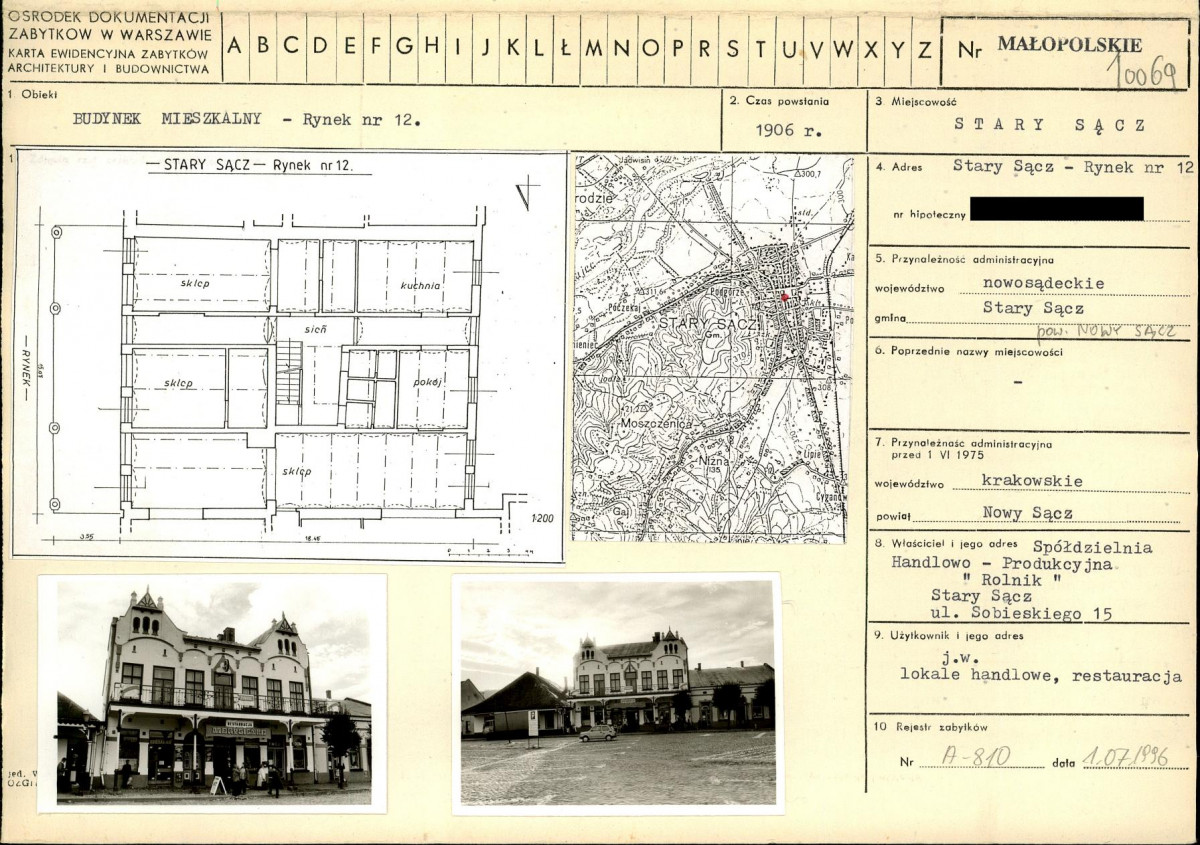 OŚRODEK DOKUMENTACJI
ZABYTKÓW W WARSZAWIE
KARTA EWIDENCYJNA ZABYTKÓW
ARCHITEKTURY I BUDOWNICTWA
A B C D E F G H I J K L Ł M N O P R S T U V W X Y Z
Nr MAŁOPOLSKIE
10069
1. Obiekt
BUDYNEK MIESZKALNY - Rynek nr 12.
2. Czas powstania
1906 r.
3. Miejscowość
STARY SĄCZ
4. Adres Stary Sącz - Rynek nr 12
nr hipoteczny
5. Przynależność administracyjna
województwo nowosądeckie
gmina Stary Sącz
pow. NOWY SĄCZ
6. Poprzednie nazwy miejscowości
-
7. Przynależność administracyjna
przed 1 VI 1975
województwo krakowskie
powiat Nowy Sącz
8. Właściciel i jego adres Spółdzielnia
Handlowo - Produkcyjna
" Rolnik "
Stary Sącz
ul. Sobieskiego 15
9. Użytkownik i jego adres
j.w.
lokale handlowe, restauracja
10 Rejestr zabytków
Nr A-810 data 1.07.1996
— STARY SĄCZ — Rynek nr 12.
sklep
kuchnia
sień
— RYNEK —
sklep
pokój
sklep
1:200
3.95
18.45
Jadwisin
300,7
rodzie
311,6
Podgórz
Poczekaj
STARY SĄCZ
Gm.
308
Moszczenica
Niżna
135
Lipie
Gaj